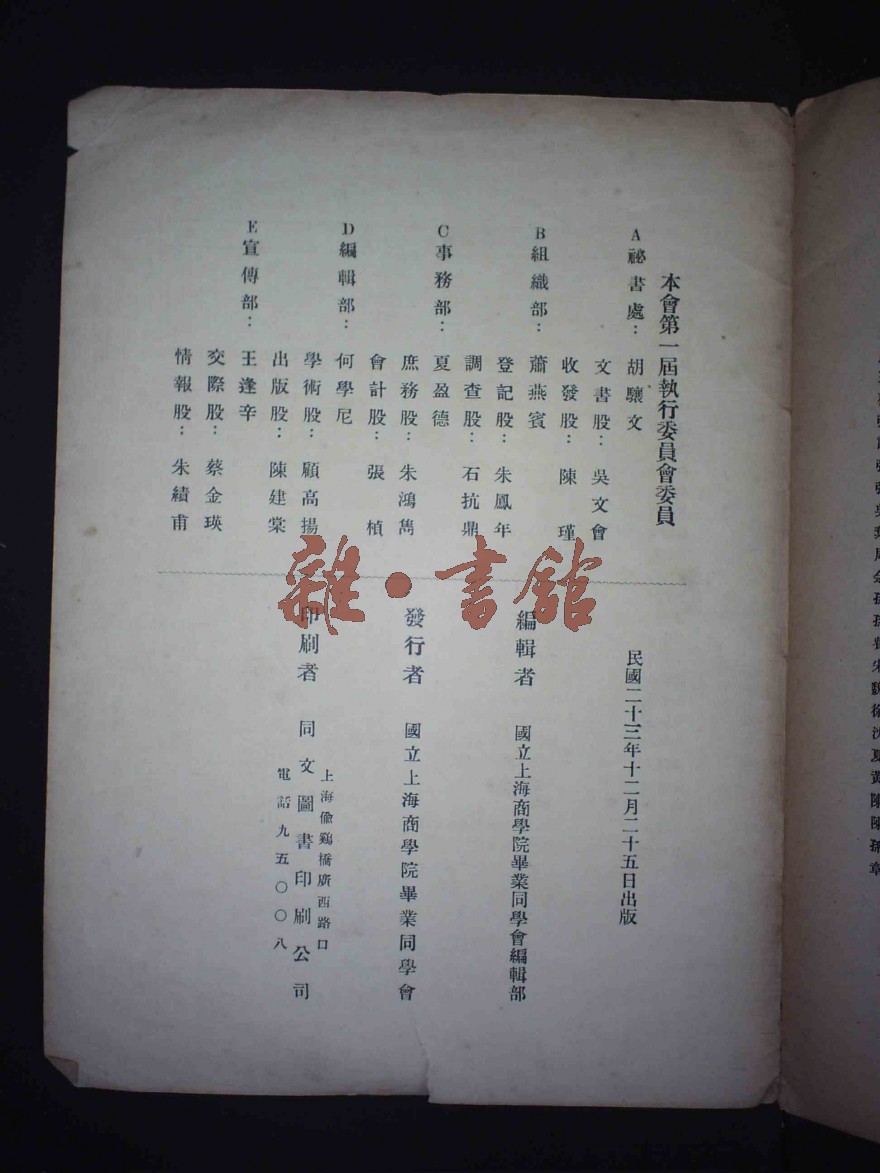 本會第一屆執行委員會委員
A 祕書處：胡驤文
文書股：吳文會
收發股：陳瑾
B 組織部：蕭燕賓
登記股：朱鳳年
調查股：石抗鼎
C 事務部：夏盈德
庶務股：朱鴻雋
會計股：張楨
D 編輯部：何學尼
學術股：顧高揚
出版股：陳建棠
E 宣傳部：王逢辛
交際股：蔡金瑛
情報股：朱績甫
民國二十三年十二月二十五日出版
編輯者 國立上海商學院畢業同學會編輯部
發行者 國立上海商學院畢業同學會
印刷者 同文圖書印刷公司
上海偷鷄橋廣西路口
電話九五〇〇八
雜·書館
孫
宋
魏
徐
沈
夏
黃
陳
陳
孫
章